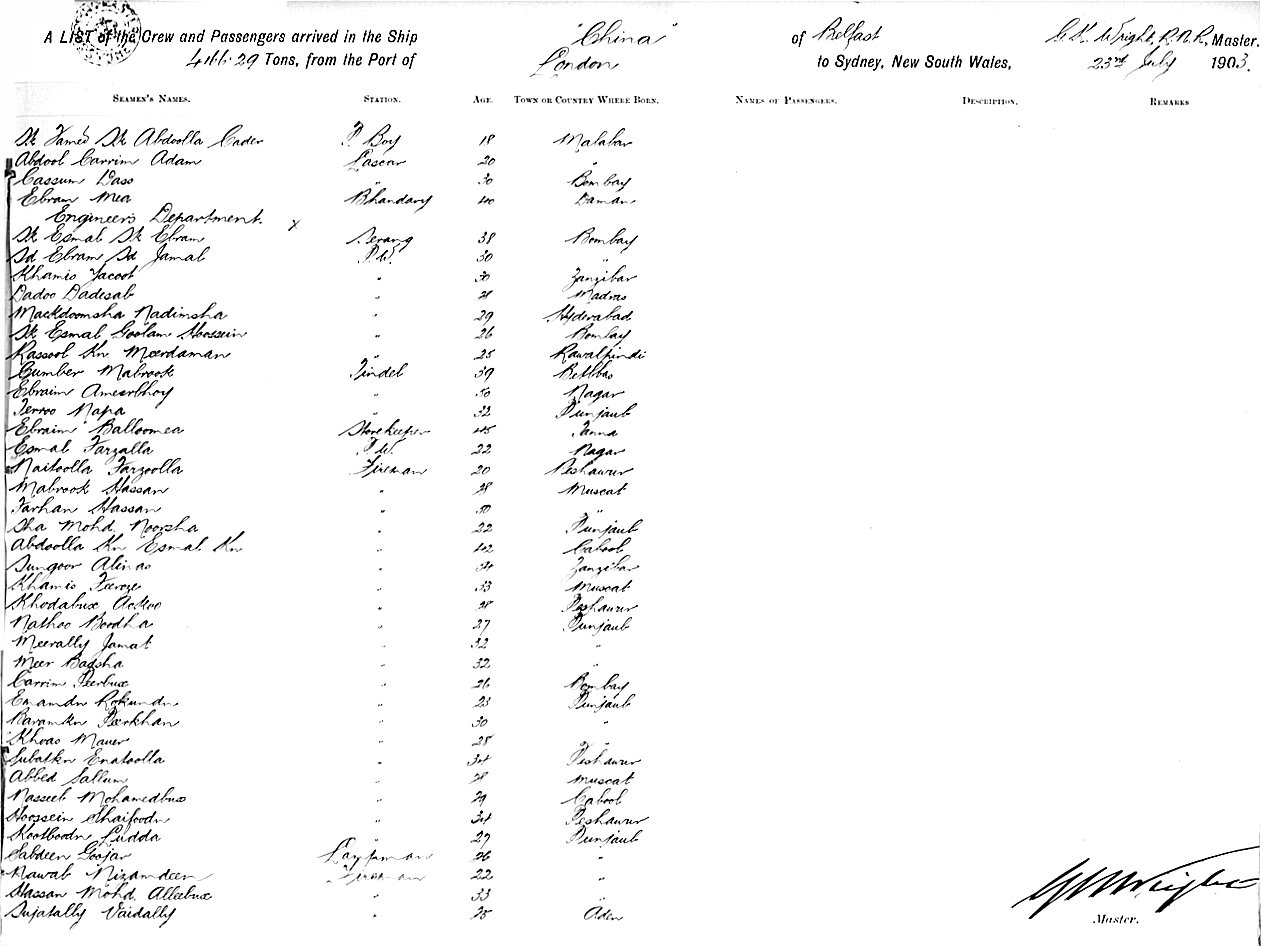 A LIST of the Crew and Passengers arrived in the Ship "China" of Belfast Master.
Tons, from the Port of London to Sydney, New South Wales, 23rd July 1903.
SEAMEN'S NAMES. STATION. AGE. TOWN OR COUNTRY WHERE BORN. NAMES OF PASSENGERS. DESCRIPTION. REMARKS
Abdoolla Cader Boy 18 Malabar
Abdool Carrim Adam Lascar 20 "
Cassum Dass " 30 Bombay
Ebram Mea Bhandary 40 Daman
Engineers Department. x
Sk Esmal Sk Ebram Serang 38 Bombay
Sd Ebram Sd Jamal P.W. 30 "
Khamis Yacoot " 30 Zanzibar
Dadoo Dadesab " Madras
Mackdoomsha Nadimsha " 29 Hyderabad
Sk Esmal Goolam Hoossein " 26 Bombay
Rassool Kn Meerdaman " 25 Rawalpindi
Cumber Mabrook Tindel 39
Ebraim Ameerbhoy " 50 Nagar
Napa " 32 Punjaub
Ebraim Balloomea Storekeeper 45 Tanna
Esmal Farzalla P.W. 22 Nagar
Farzoolla Fireman 20 Peshawur
Mabrook Hassan " 28 Muscat
Farhan Hassan " 50 "
Sha Mohd. Noorsha " 22 Punjaub
Abdoolla Kn Esmal Kn " 42 Cabool
Sungoor " 34 Zanzibar
Khamis Feroze " 33 Muscat
Khodabux " 28 Peshawur
Nathoo Boodha " 27 Punjaub
Meerally Jamat " 32 "
Meer Badsha " 32 "
Carrim Peerbux " 26 Bombay
Emamdn Rokundn " 23 Punjaub
Karamkn Peerkhan " 30 "
" 28 "
Enatoolla " 34 Peshawur
Abbed Sallum " 28 Muscat
Nasseeb Mohamedbux " 29 Cabool
Hoossein " 34 Peshawur
Kootboodn Ludda " 27 Punjaub
Sabdeen Goojar Lampman 26 "
Nawab Nizamdeen Fireman 22 "
Hassan Mohd. Alleebux " 33 "
Sujatally Vaidally " 25 Aden
Master.